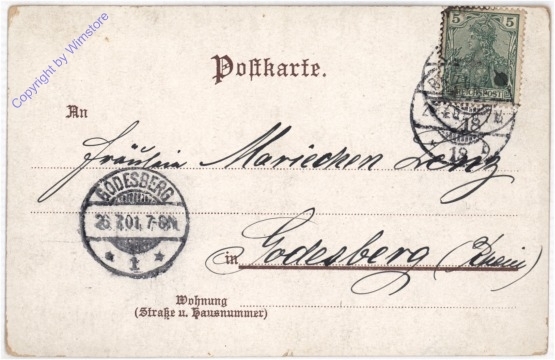 Copyright by Wimstore
5 5
REICHSPOST
Postkarte.
An
Fräulein Mariechen Lenz
GODESBERG
26.7.01. 7-8N.
1
in Godesberg (Rhein)
Wohnung
(Straße u. Hausnummer)